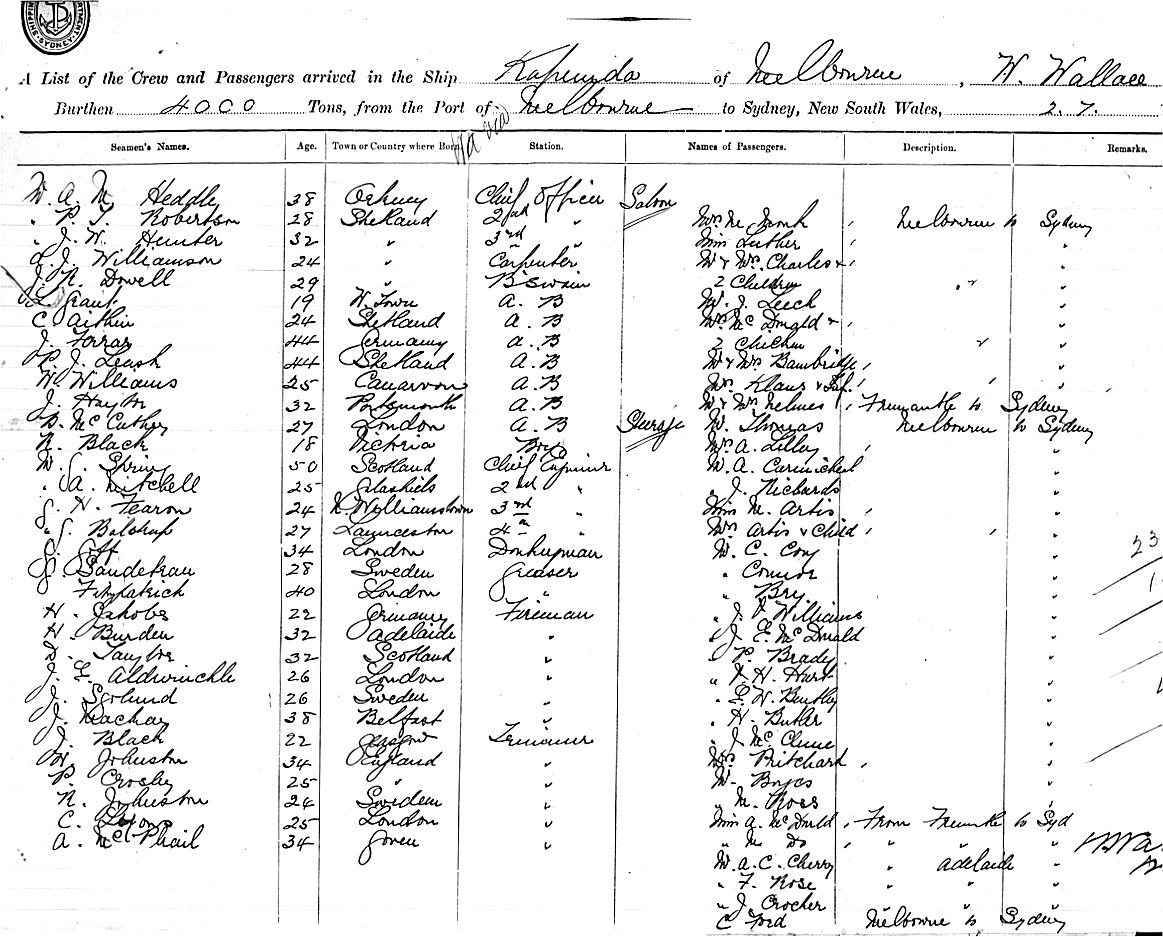 SHIPPING DEPARTMENT. SYDNEY
A List of the Crew and Passengers arrived in the Ship Kapunda of Melbourne, W. Wallace
Burthen 4000 Tons, from the Port of Melbourne to Sydney, New South Wales, 2. 7.
Seamen's Names. Age. Town or Country where Born Station. Names of Passengers. Description. Remarks.
W. A. M. Heddle 38 Orkney Chief Officer Saloon
" P. T. Robertson 28 Shetland 2nd " Melbourne to Sydney
" J. W. Hunter 32 " 3rd " Miss Luther "
L. J. Williamson 24 " Carpenter Mr & Mrs Charles & "
J. R. Dowell 29 " B'swain 2 Children "
L. Grant 19 W. Town A. B Mr J. Leech "
C. Aitkin 24 Shetland A. B Mrs McDonald & "
J. Farrar 44 Germany A. B 2 Children "
P. J. Leask 44 Shetland A. B Mr & Mrs Bambridge "
W. Williams 25 Canarvon A. B Mrs Klaus & Inf. "
J. Haylor 32 Portsmouth A. B Mr & Mrs Nelmes Fremantle to Sydney
27 London A. B Steerage Mr Thomas Melbourne to Sydney
R. Black 18 Victoria Boy Mrs A. Lilley "
W. G. Spring 50 Scotland Chief Engineer Mr A. Carmichael "
" A. Mitchell 25 Glashiels 2nd " " J. Richards "
G. H. Fearon 24 N. Williamstown 3rd " Miss M. Artis "
27 Launceston 4th " Mrs Artis & Child "
G. Goff 34 London Donkeyman Mr C. Cory "
28 Sweden Greaser " Connor "
Fitzpatrick 40 London " " Bry "
H. Jakobs 22 Germany Fireman " J. Williams "
H. Burden 32 Adelaide " " J. E. McDonald "
D. Taylor 32 Scotland " " P. Brady "
J. F. Aldwinckle 26 London " " H. Hart "
J. 26 Sweden " " W. Bentley "
J. Mackay 38 Belfast " " H. Butler "
J. Black 22 Glasgow Trimmer " J. McClune "
W. Johnston 34 England " Mrs Pritchard "
P. Crosby 25 " " Mr Boyes "
N. Johnston 24 Sweden " " M. Ross "
C. 25 London " Miss A. McDonald From Fremtle to Syd
A. McPhail 34 Govan " " M Do " " "
Mr A. C. Cherry " Adelaide "
" F. Rose " " "
" J. Crocker " " "
C Ford Melbourne to Sydney
23